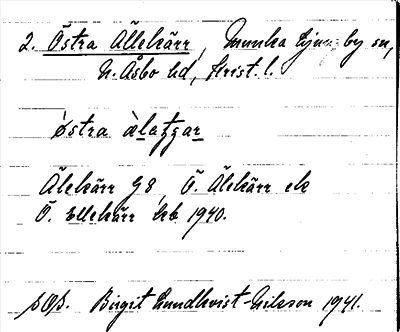 2. Östra Ällekärr, Munka Ljungby sn,
N. Åsbo hd, Krist. l.
östra àlatzgar
Älekärr G8, Ö. Älekärr ek
Ö. Ellekärr hb 1940.
Birgit Lundkvist-Nilsson 1941.